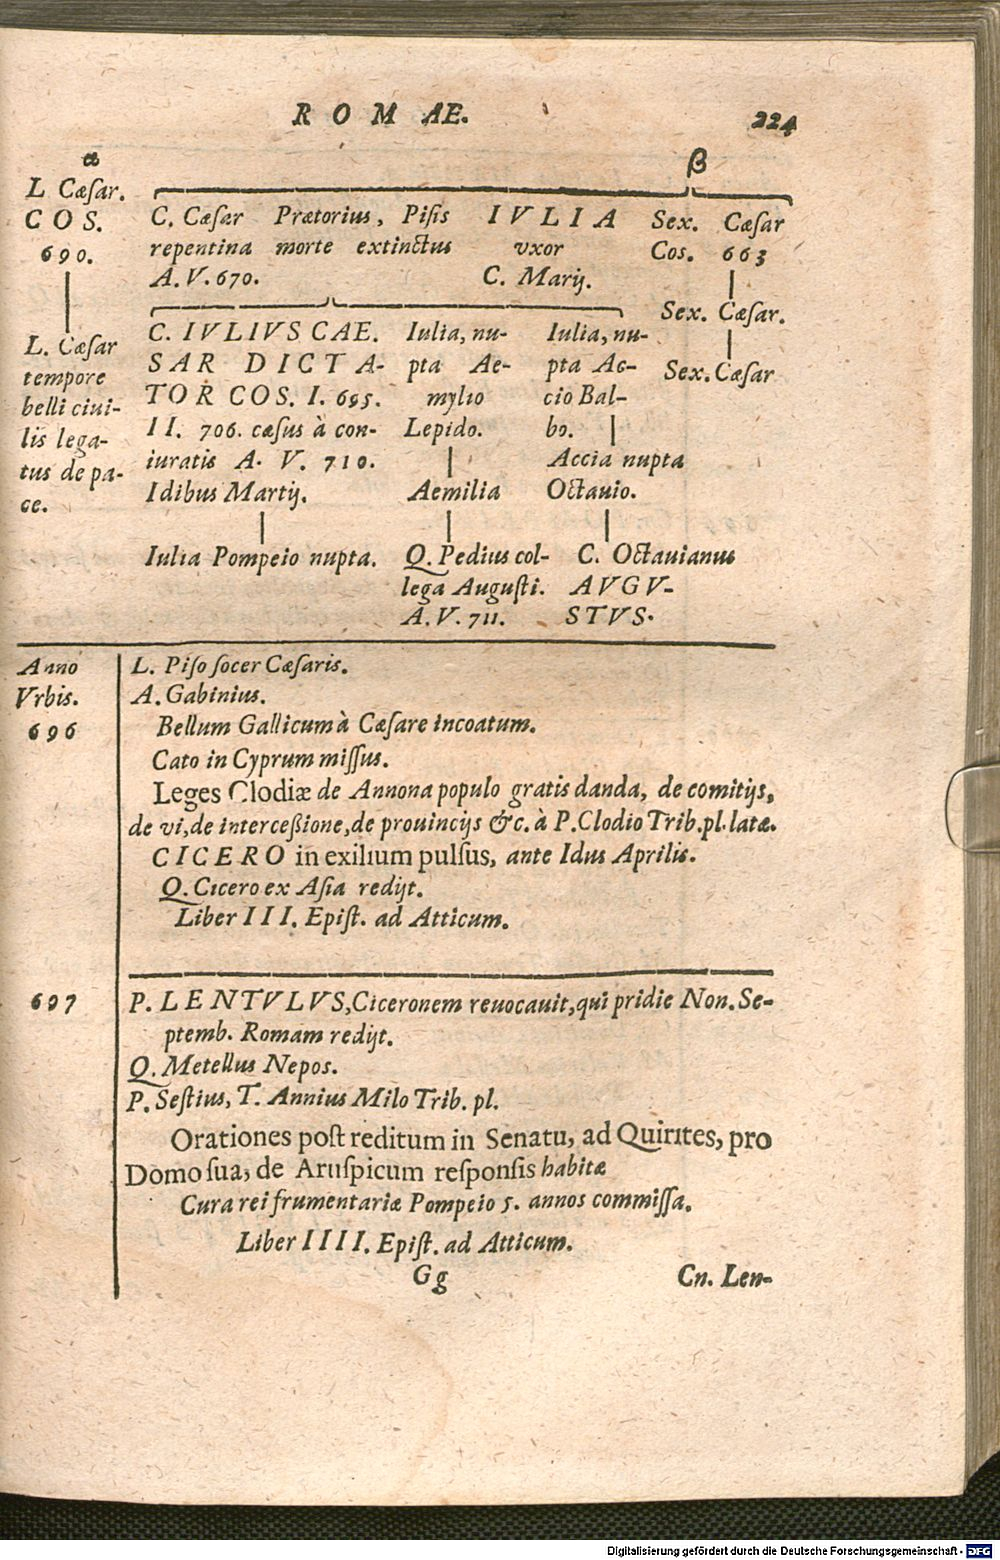 R O M AE.
224
α
L Cæſar.
C O S.
690.
L. Cæſar
tempore
belli ciui-
lis lega-
tus de pa-
ce.
β
C. Cæſar Prætorius, Piſis
repentina morte extinctus
A. V. 670.
I V L I A
vxor
C. Marij.
Sex. Cæſar
Cos. 663
Sex. Cæſar.
Sex. Cæſar
C. IVLIVS CAE.
SAR DICTA-
TOR COS. I. 695.
II. 706. cæſus à con-
iuratis A. V. 710.
Idibus Martij.
Iulia Pompeio nupta.
Iulia, nu-
pta Ae-
mylio
Lepido.
Aemilia
Q. Pedius col-
lega Auguſti.
A. V. 711.
Iulia, nu-
pta Ac-
cio Bal-
bo.
Accia nupta
Octauio.
C. Octauianus
AVGV-
STVS.
Anno
Vrbis.
696
L. Piſo ſocer Cæſaris.
A. Gabinius.
Bellum Gallicum à Cæſare incoatum.
Cato in Cyprum miſſus.
Leges Clodiæ de Annona populo gratis danda, de comitijs,
de vi, de interceßione, de prouincijs &c. à P. Clodio Trib. pl. latæ.
CICERO in exilium pulſus, ante Idus Aprilis.
Q. Cicero ex Aſia redijt.
Liber III. Epiſt. ad Atticum.
697
P. LENTVLVS, Ciceronem reuocauit, qui pridie Non. Se-
ptemb. Romam redijt.
Q. Metellus Nepos.
P. Seſtius, T. Annius Milo Trib. pl.
Orationes poſt reditum in Senatu, ad Quirites, pro
Domo ſua, de Aruſpicum reſponſis habitæ
Cura rei frumentariæ Pompeio 5. annos commiſſa.
Liber IIII. Epiſt. ad Atticum.
Gg
Cn. Len-
Digitalisierung gefördert durch die Deutsche Forschungsgemeinschaft - DFG